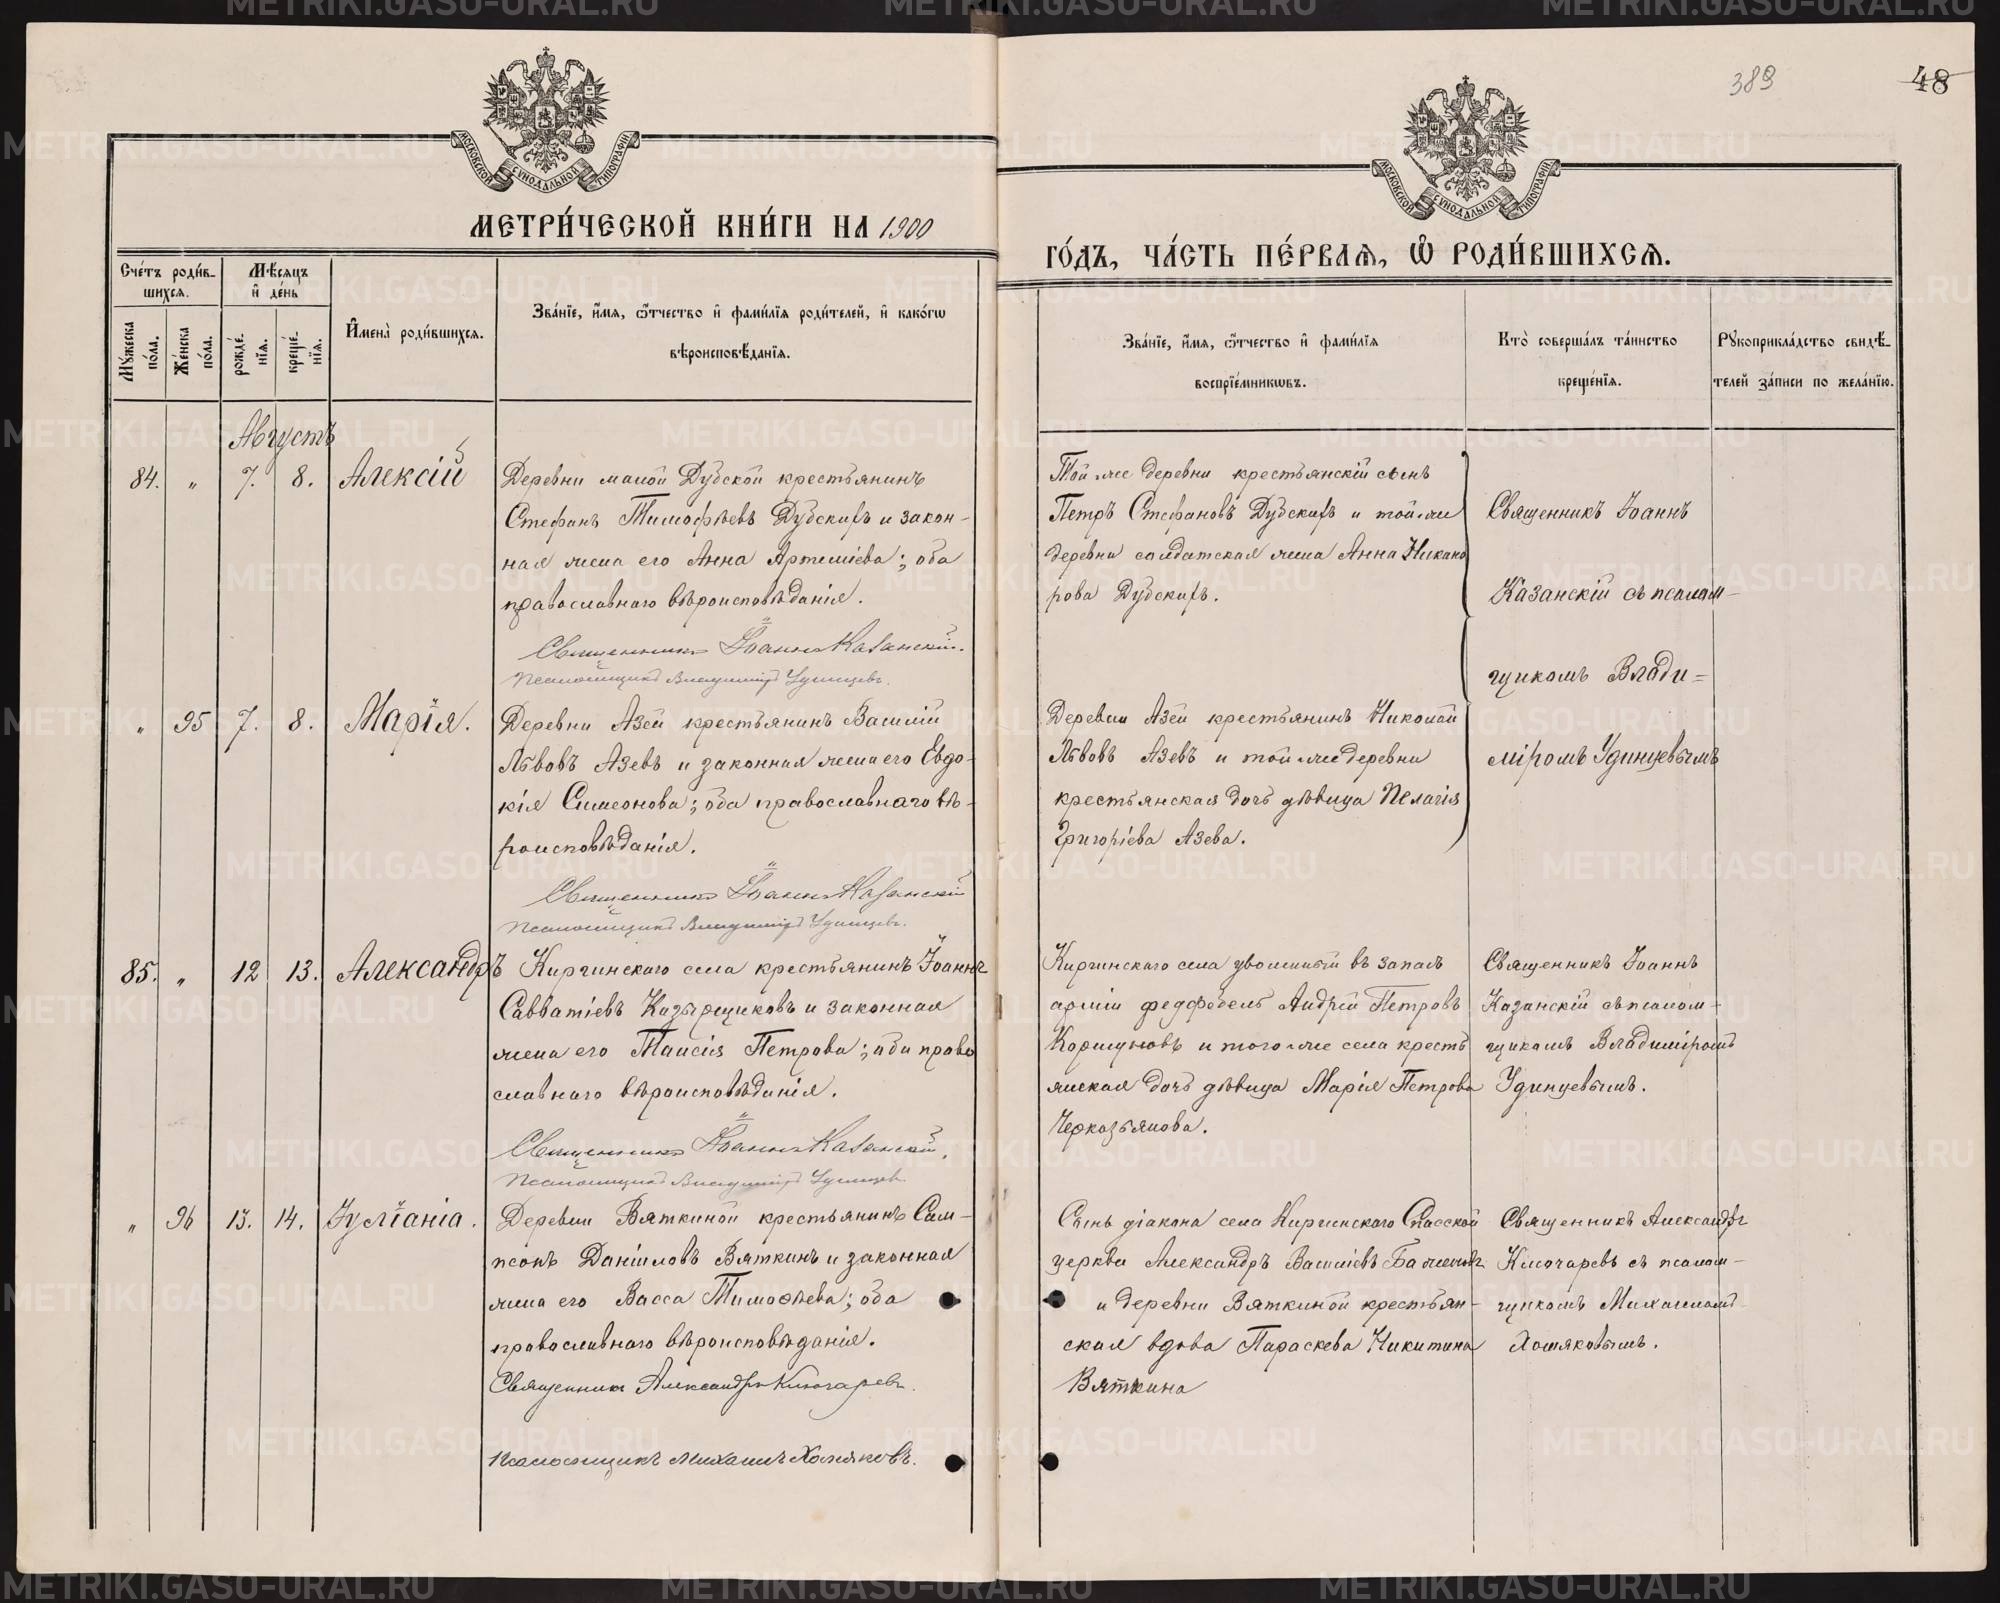 389
48
МОСКОВСКОЙ СѴНОДАЛЬНОЙ ТИПОГРАФІИ
МОСКОВСКОЙ СѴНОДАЛЬНОЙ ТИПОГРАФІИ
МЕТРИ́ЧЕСКОЙ КНИ́ГИ НА 1900
ГО́ДЪ, ЧА́СТЬ ПЕ́РВАЯ, Ѽ РОДИ́ВШИХСЯ.
Сче́тъ роди́в-
шихся.
Мѣ́сяцъ
и де́нь
Мꙋ́жеска по́ла.
Же́нска по́ла.
рожде́нїя.
креще́нїя.
Имена̀ роди́вшихся.
Зва́нїе, и́мя, ѻ҆́тчество и фами́лїя роди́телей, и како́гѡ
вѣроисповѣ́данїя.
Зва́нїе, и́мя, ѻ҆́тчество и фами́лїя
воспрїе́мникѡвъ.
Кто̀ соверша́лъ та́инство
креще́нїя.
Рꙋкоприкла́дство свидѣ́-
телей за́писи по жела́нїю.
Августъ
84. " 7. 8. Алексій
Деревни малой Дубской крестьянинъ
Стефанъ Тимофѣевъ Дубскихъ и закон-
ная жена его Анна Артемиева; оба
православнаго вѣроисповѣданія.
Священникъ Іоаннъ Казанскій.
Псаломщикъ Владиміръ Удинцевъ.
Той же деревни крестьянскій сынъ
Петръ Стефановъ Дубскихъ и той-же
деревни солдатская жена Анна Никано
рова Дубскихъ.
Священникъ Іоаннъ
Казанскій съ псалом-
щикомъ Влади=
міромъ Удинцевымъ
" 95 7. 8. Марія.
Деревни Азевй крестьянинъ Василій
Львовъ Азевъ и законная жена его Евдо-
кія Симеонова; оба православнаго вѣ-
роисповѣданія.
Священникъ Іоаннъ Казанскій
Псаломщикъ Владиміръ Удинцевъ.
Деревни Азевй крестьянинъ Николай
Львовъ Азевъ и той-же деревни
крестьянская дочь дѣвица Пелагія
Григоріева Азева.
85. " 12 13. Александръ
Киргинскаго села крестьянинъ Іоаннъ
Савватіевъ Казырщиковъ и законная
жена его Таисія Петрова; оба право
славнаго вѣроисповѣданія.
Священникъ Іоаннъ Казанскій.
Псаломщикъ Владиміръ Удинцевъ.
Киргинскаго села уволенный въ запасъ
арміи федфебель Андрей Петровъ
Коршуновъ и того-же села кресть
янская дочь дѣвица Марія Петрова
Черкозьянова.
Священникъ Іоаннъ
Казанскій съ псалом-
щикомъ Владиміромъ
Удинцевымъ.
" 96 13. 14. Іуліанія.
Деревни Вяткиной крестьянинъ Сам-
псонъ Даниловъ Вяткинъ и законная
жена его Васса Тимофѣева; оба
православнаго вѣроисповѣданія.
Священникъ Александръ Ключаревъ.
Псаломщикъ Михаилъ Хомяковъ.
Сынъ діакона села Киргинскаго Спасской
церкви Александръ Василіевъ
и деревни Вяткиной крестьян-
ская вдова Параскева Никитина
Вяткина
Священникъ Александръ
Ключаревъ съ псалом-
щикомъ Михаиломъ
Хомяковымъ.